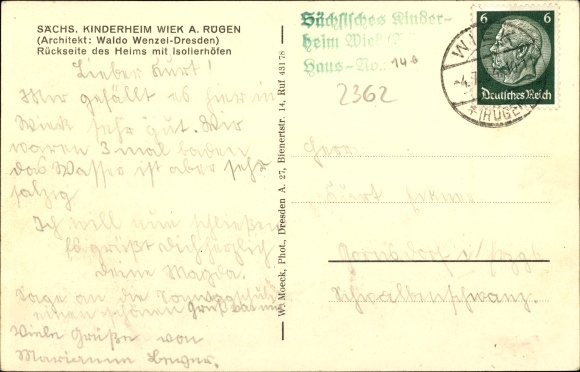 SÄCHS. KINDERHEIM WIEK A. RÜGEN
(Architekt: Waldo Wenzel-Dresden)
Rückseite des Heims mit Isolierhöfen
Lieber Kurt!
Mir gefällt es hier in
Wiek sehr gut. Wir
waren 3 mal baden
das Wasser ist aber sehr
salzig
Ich will nun schließen
Es grüßt dich herzlich
deine Magda.
Sage an die
einen schönen Gruß
Viele Grüße von
Marianne
W. Moeck, Phot., Dresden A. 27, Bienertstr. 14, Ruf 43178
Sächsisches Kinder-
heim Wiek
Haus-No.: 14b
2362
6 6
Deutsches Reich
WIEK
(RÜGEN)
Herrn
Kurt
Schwalbenschwanz.